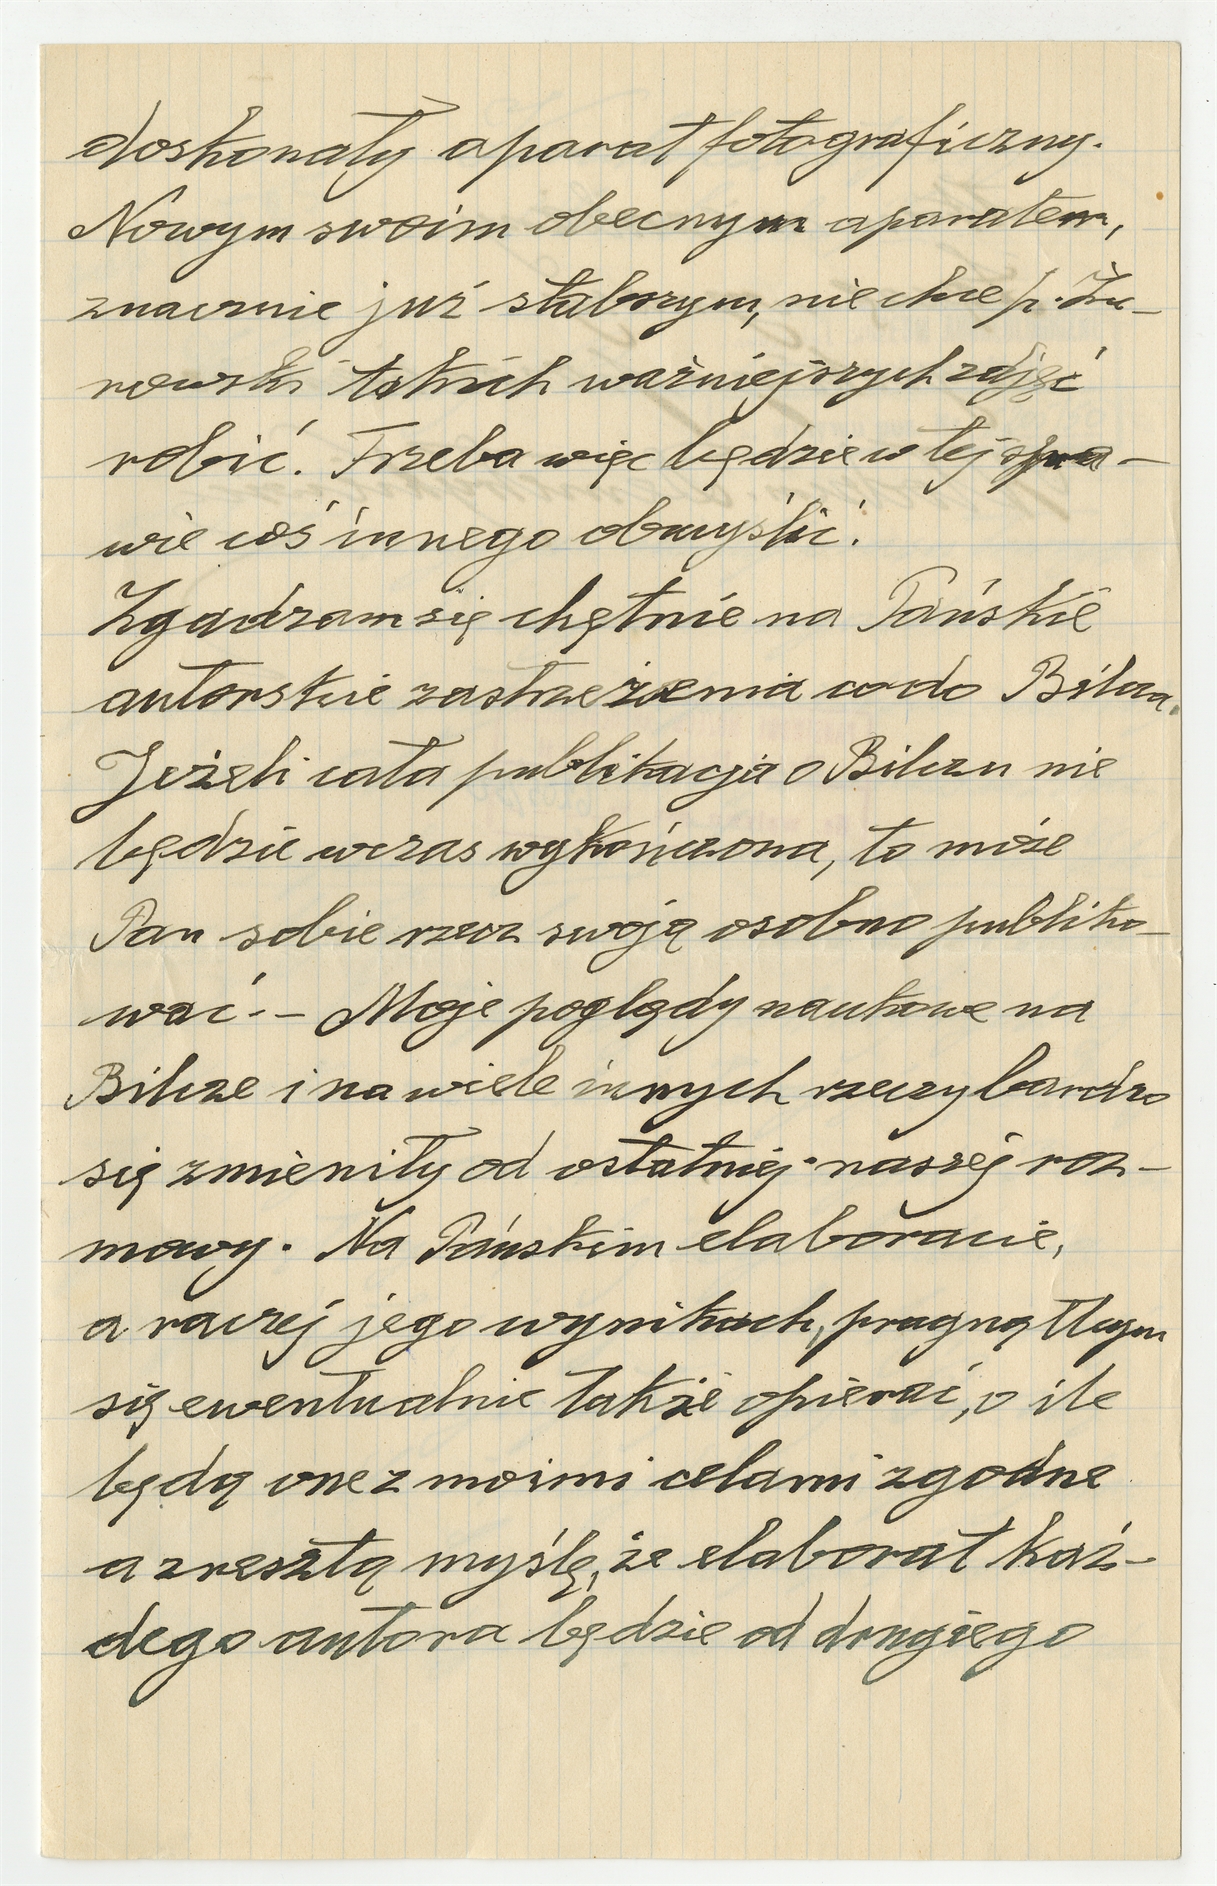 doskonały aparat fotograficzny.
Nowym swoim obecnym aparatem,
znacznie już słabszym, nie chce p. Żu-
rowski takich ważniejszych zdjęć
robić. Trzeba więc będzie w tej spra-
wie coś innego obmyślić.
Zgadzam się chętnie na Pańskie
autorskie zastrzeżenia co do Bilcza.
Jeżeli cała publikacja o Bilczu nie
będzie wczas wykończona, to może
Pan sobie rzecz swoją osobno publiko-
wać. - Moje poglądy naukowe na
Bilcze i na wiele innych rzeczy bardzo
się zmieniły od ostatniej naszej roz-
mowy. Na Pańskim elaboracie,
a raczej jego wynikach, pragną
się ewentualnie także opierać, o ile
będą one z moimi celami zgodne
a zresztą myślę, że elaborat każ-
dego autora będzie od drugiego